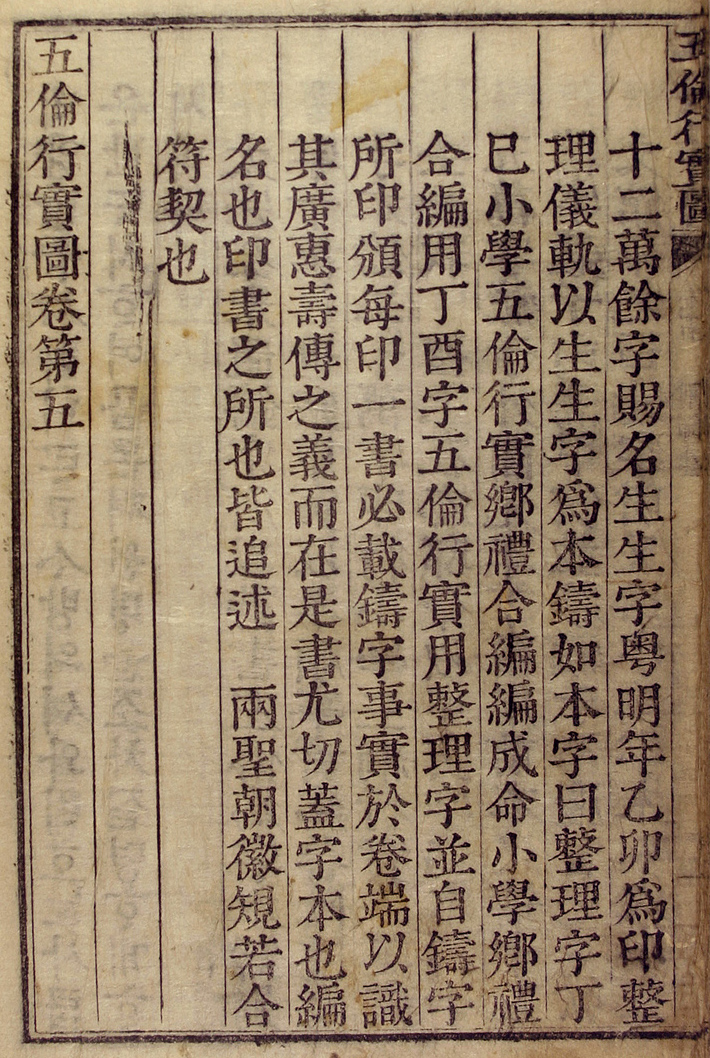 五倫行實圖
十二萬餘字賜名生生字粤明年乙卯爲印整
理儀軌以生生字爲本鑄如本字曰整理字丁
巳小學五倫行實鄉禮合編編成命小學鄉禮
合編用丁酉字五倫行實用整理字並自鑄字
所印頒每印一書必載鑄字事實於卷端以識
其廣惠壽傳之義而在是書尤切蓋字本也編
名也印書之所也皆追述　兩聖朝徽規若合
符契也
五倫行實圖卷第五